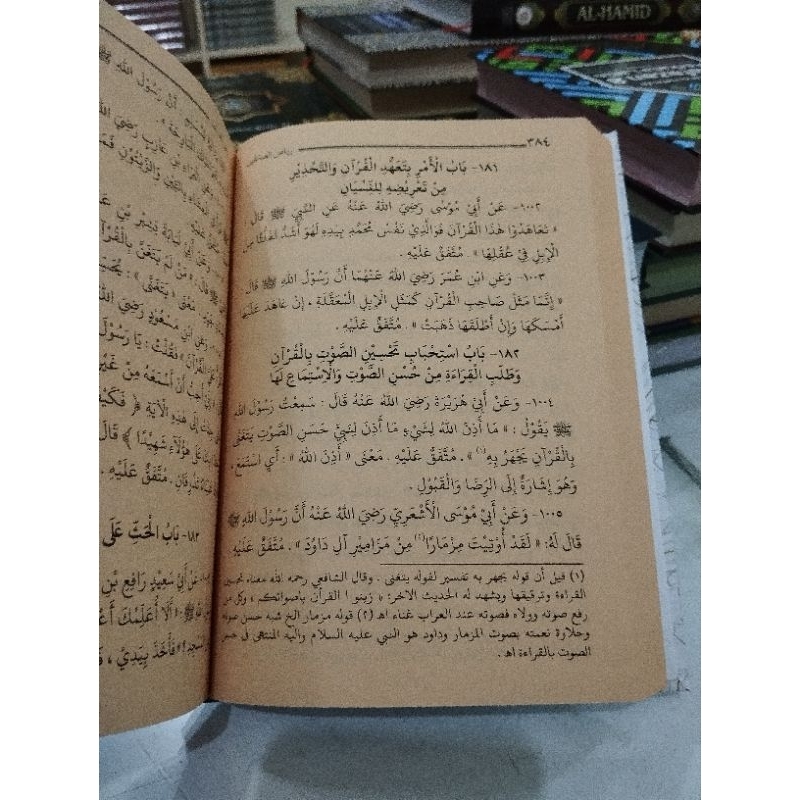 AL-HAMID
٣٨٤
رياض الصالحين
١٨١- بَابُ الْأَمْرِ بِتَعَهُّدِ الْقُرْآنِ وَالتَّحْذِيْرِ
مِنْ تَعْرِيْضِهِ لِلنِّسْيَانِ
١٠٠٢- عَنْ أَبِيْ مُوْسَى رَضِيَ اللهُ عَنْهُ عَنِ النَّبِيِّ ﷺ قَالَ
« تَعَاهَدُوْا هَذَا الْقُرْآنَ فَوَالَّذِيْ نَفْسُ مُحَمَّدٍ بِيَدِهِ لَهُوَ أَشَدُّ تَفَلُّتًا مِنَ
الْإِبِلِ فِيْ عُقُلِهَا » . مُتَّفَقٌ عَلَيْهِ .
١٠٠٣- وَعَنِ ابْنِ عُمَرَ رَضِيَ اللهُ عَنْهُمَا أَنَّ رَسُوْلَ اللهِ ﷺ قَالَ
« إِنَّمَا مَثَلُ صَاحِبِ الْقُرْآنِ كَمَثَلِ الْإِبِلِ الْمُعَقَّلَةِ ، إِنْ عَاهَدَ عَلَيْهَا
أَمْسَكَهَا وَإِنْ أَطْلَقَهَا ذَهَبَتْ » . مُتَّفَقٌ عَلَيْهِ .
١٨٢- بَابُ اسْتِحْبَابِ تَحْسِيْنِ الصَّوْتِ بِالْقُرْآنِ
وَطَلَبِ الْقِرَاءَةِ مِنْ حُسْنِ الصَّوْتِ وَالْاِسْتِمَاعِ لَهَا
١٠٠٤- وَعَنْ أَبِيْ هُرَيْرَةَ رَضِيَ اللهُ عَنْهُ قَالَ : سَمِعْتُ رَسُوْلَ اللهِ
ﷺ يَقُوْلُ : « مَا أَذِنَ اللهُ لِشَيْءٍ مَا أَذِنَ لِنَبِيٍّ حَسَنِ الصَّوْتِ يَتَغَنَّى
بِالْقُرْآنِ يَجْهَرُ بِهِ (١) » . مُتَّفَقٌ عَلَيْهِ . مَعْنَى « أَذِنَ اللهُ » : أَيِ اسْتَمَعَ ،
وَهُوَ إِشَارَةٌ إِلَى الرِّضَا وَالْقَبُوْلِ .
١٠٠٥- وَعَنْ أَبِيْ مُوْسَى الْأَشْعَرِيِّ رَضِيَ اللهُ عَنْهُ أَنَّ رَسُوْلَ اللهِ ﷺ
قَالَ لَهُ : « لَقَدْ أُوْتِيْتَ مِزْمَارًا (٢) مِنْ مَزَامِيْرِ آلِ دَاوُدَ » . مُتَّفَقٌ عَلَيْهِ
(١) قيل أن قوله يجهر به تفسير لقوله يتغنى . وقال الشافعي رحمه الله معناه تحسين
القراءة وترقيقها ويشهد له الحديث الآخر : « زينوا القرآن بأصواتكم » وكل من
رفع صوته ووالاه فصوته عند العراب غناء اهـ (٢) قوله مزمار الخ شبه حسن صوته
وحلاوة نغمته بصوت المزمار وداود هو النبي عليه السلام واليه المنتهى في حسن
الصوت بالقراءة اهـ
أَنَّ رَسُوْلَ اللهِ
عَازِبٍ رَضِيَ اللهُ
بِالتِّيْنِ وَالزَّيْتُوْنِ
بَشِيْرِ بْنِ
« مَنْ لَمْ يَتَغَنَّ بِالْقُرْآنِ
مَعْنَى « يَتَغَنَّى » : يُحَسِّنُ
ابْنِ مَسْعُوْدٍ رَضِيَ اللهُ
الْقُرْآنَ » فَقُلْتُ : يَا رَسُوْلَ
أُحِبُّ أَنْ أَسْمَعَهُ مِنْ غَيْرِ
إِلَى هَذِهِ الْآيَةِ ﴿ فَكَيْفَ
عَلَى هَؤُلَاءِ شَهِيْدًا ﴾ قَالَ
تَذْرِفَانِ . مُتَّفَقٌ عَلَيْهِ .
١٨٣- بَابُ الْحَثِّ عَلَى
عَنْ أَبِيْ سَعِيْدٍ رَافِعِ بْنِ
ﷺ : « أَلَا أُعَلِّمُكَ
فَأَخَذَ بِيَدِيْ ،